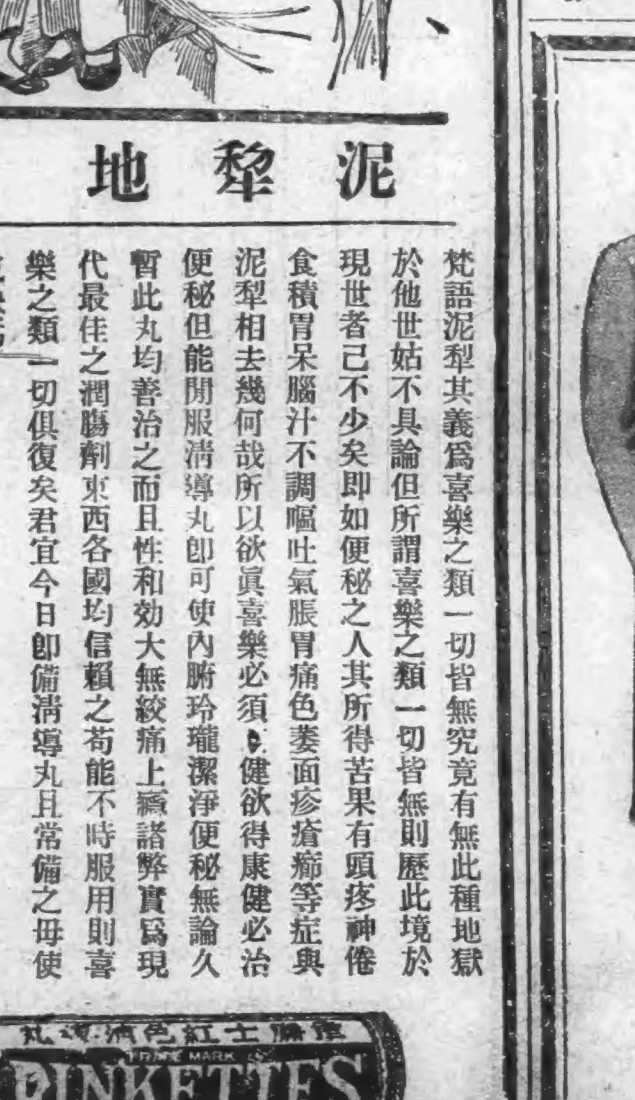 泥犂地
梵語泥犁其義爲喜樂之類一切皆無究竟有無此種地獄
於他世姑不具論但所謂喜樂之類一切皆無則歷此境於
現世者已不少矣即如便秘之人其所得苦果有頭疼神倦
食積胃呆腦汁不調嘔吐氣脹胃痛色萎面疹瘡癤等症與
泥犁相去幾何哉所以欲眞喜樂必須健欲得康健必治
便秘但能開服清導丸卽可使內腑玲瓏潔淨便秘無論久
暫此丸均善治之而且性和効大無絞痛上癮諸弊實爲現
代最佳之潤腸劑東西各國均信賴之苟能不時服用則喜
樂之類一切俱復矣君宜今日卽備清導丸且常備之毋使
丸導清色紅士廉韋
TRADE MARK
PINKETTES